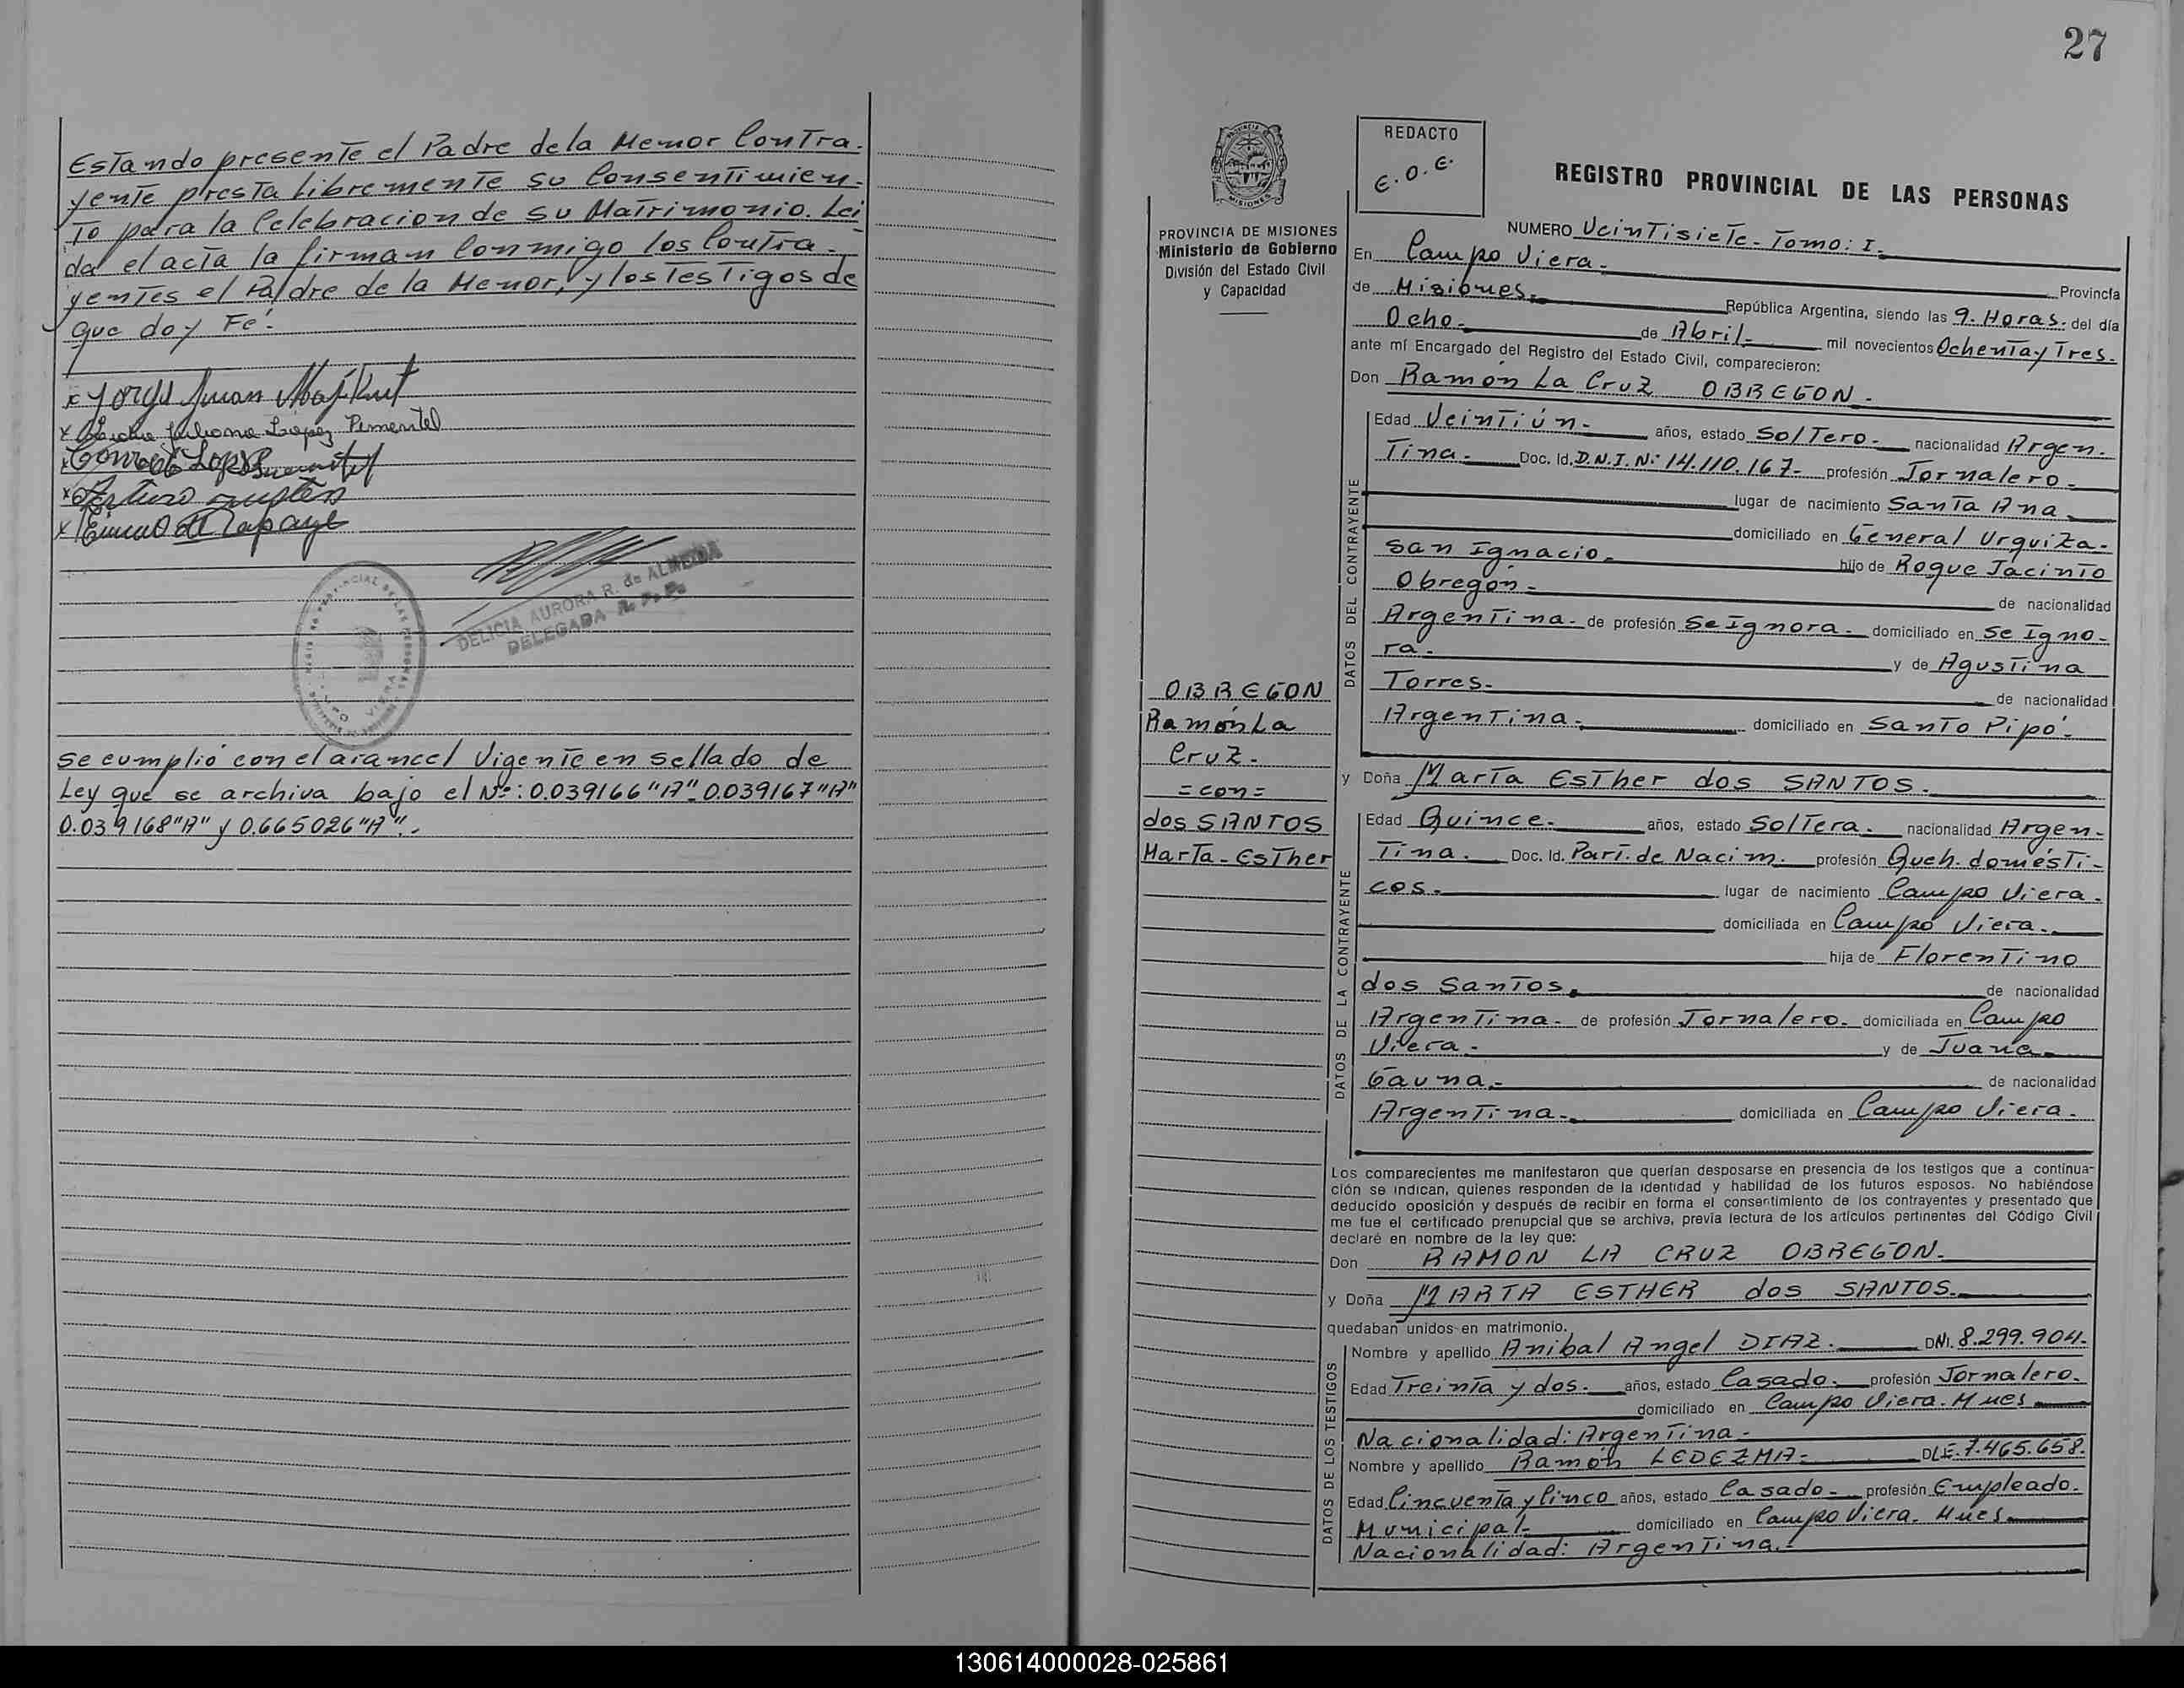 Estando presente el Padre dela Menor Contra-
yente presta libremente su Consentimien-
To para la Celebracion de su Matrimonio. Lei
da el acta la firman Conmigo los Contra-
yentes el Padre de la Menor, y los Testigos de
que doy Fé.
Juliana López Pimentel
DELICIA AURORA R. de ALMEIDA
DELEGADA R. P. P.
se cumplió con el arancel Vigente en sellado de
Ley que se archiva bajo el Nº: 0.039166 "A"_0.039167 "A"
0.039168 "A" y 0.665026 "A".-
27
PROVINCIA DE MISIONES
Ministerio de Gobierno
División del Estado Civil
y Capacidad
OBREGON
Ramón La
Cruz.-
= con =
dos SANTOS
Marta-Esther
REDACTO
E.O.E.
REGISTRO PROVINCIAL DE LAS PERSONAS
NUMERO Veintisiete-Tomo: I.-
En Campo Viera.- Provincia
de Misiones. República Argentina, siendo las 9. Horas. del día
Ocho- de Abril- mil novecientos Ochenta y Tres.
ante mí Encargado del Registro del Estado Civil, comparecieron:
Don Ramón La Cruz OBREGON.-
DATOS DEL CONTRAYENTE
Edad Veintiún- años, estado Soltero- nacionalidad Argen-
Tina- Doc. Id. D.N.I. N: 14.110.167- profesión Jornalero-
lugar de nacimiento Santa Ana
domiciliado en General Urquiza-
San Ignacio- hijo de Roque Jacinto
Obregón- de nacionalidad
Argentina- de profesión Se Ignora- domiciliado en Se Igno-
ra- y de Agustina
Torres- de nacionalidad
Argentina- domiciliado en Santo Pipó-
y Doña Marta Esther dos SANTOS.-
DATOS DE LA CONTRAYENTE
Edad Quince- años, estado Soltera- nacionalidad Argen-
Tina. Doc. Id. Part. de Nacim. profesión Queh. domésti-
cos.- lugar de nacimiento Campo Viera-
domiciliada en Campo Viera.-
hija de Florentino
dos Santos. de nacionalidad
Argentina- de profesión Jornalero- domiciliada en Campo
Viera- y de Juana
Gauna- de nacionalidad
Argentina- domiciliada en Campo Viera-
Los comparecientes me manifestaron que querían desposarse en presencia de los testigos que a continua-
ción se indican, quienes responden de la identidad y habilidad de los futuros esposos. No habiéndose
deducido oposición y después de recibir en forma el consentimiento de los contrayentes y presentado que
me fue el certificado prenupcial que se archiva, previa lectura de los artículos pertinentes del Código Civil
declaré en nombre de la ley que:
Don RAMON LA CRUZ OBREGON-
y Doña MARTA ESTHER dos SANTOS.-
quedaban unidos en matrimonio.
DATOS DE LOS TESTIGOS
Nombre y apellido Anibal Angel DIAZ.- DNI. 8.299.904-
Edad Treinta y dos.- años, estado Casado- profesión Jornalero-
domiciliado en Campo Viera. Mnes
Nacionalidad: Argentina-
Nombre y apellido Ramón LEDEZMA- DLE. 7.465.658.
Edad Cincuenta y Cinco años, estado Casado- profesión Empleado-
Municipal- domiciliado en Campo Viera- Mnes
Nacionalidad: Argentina.-
130614000028-025861